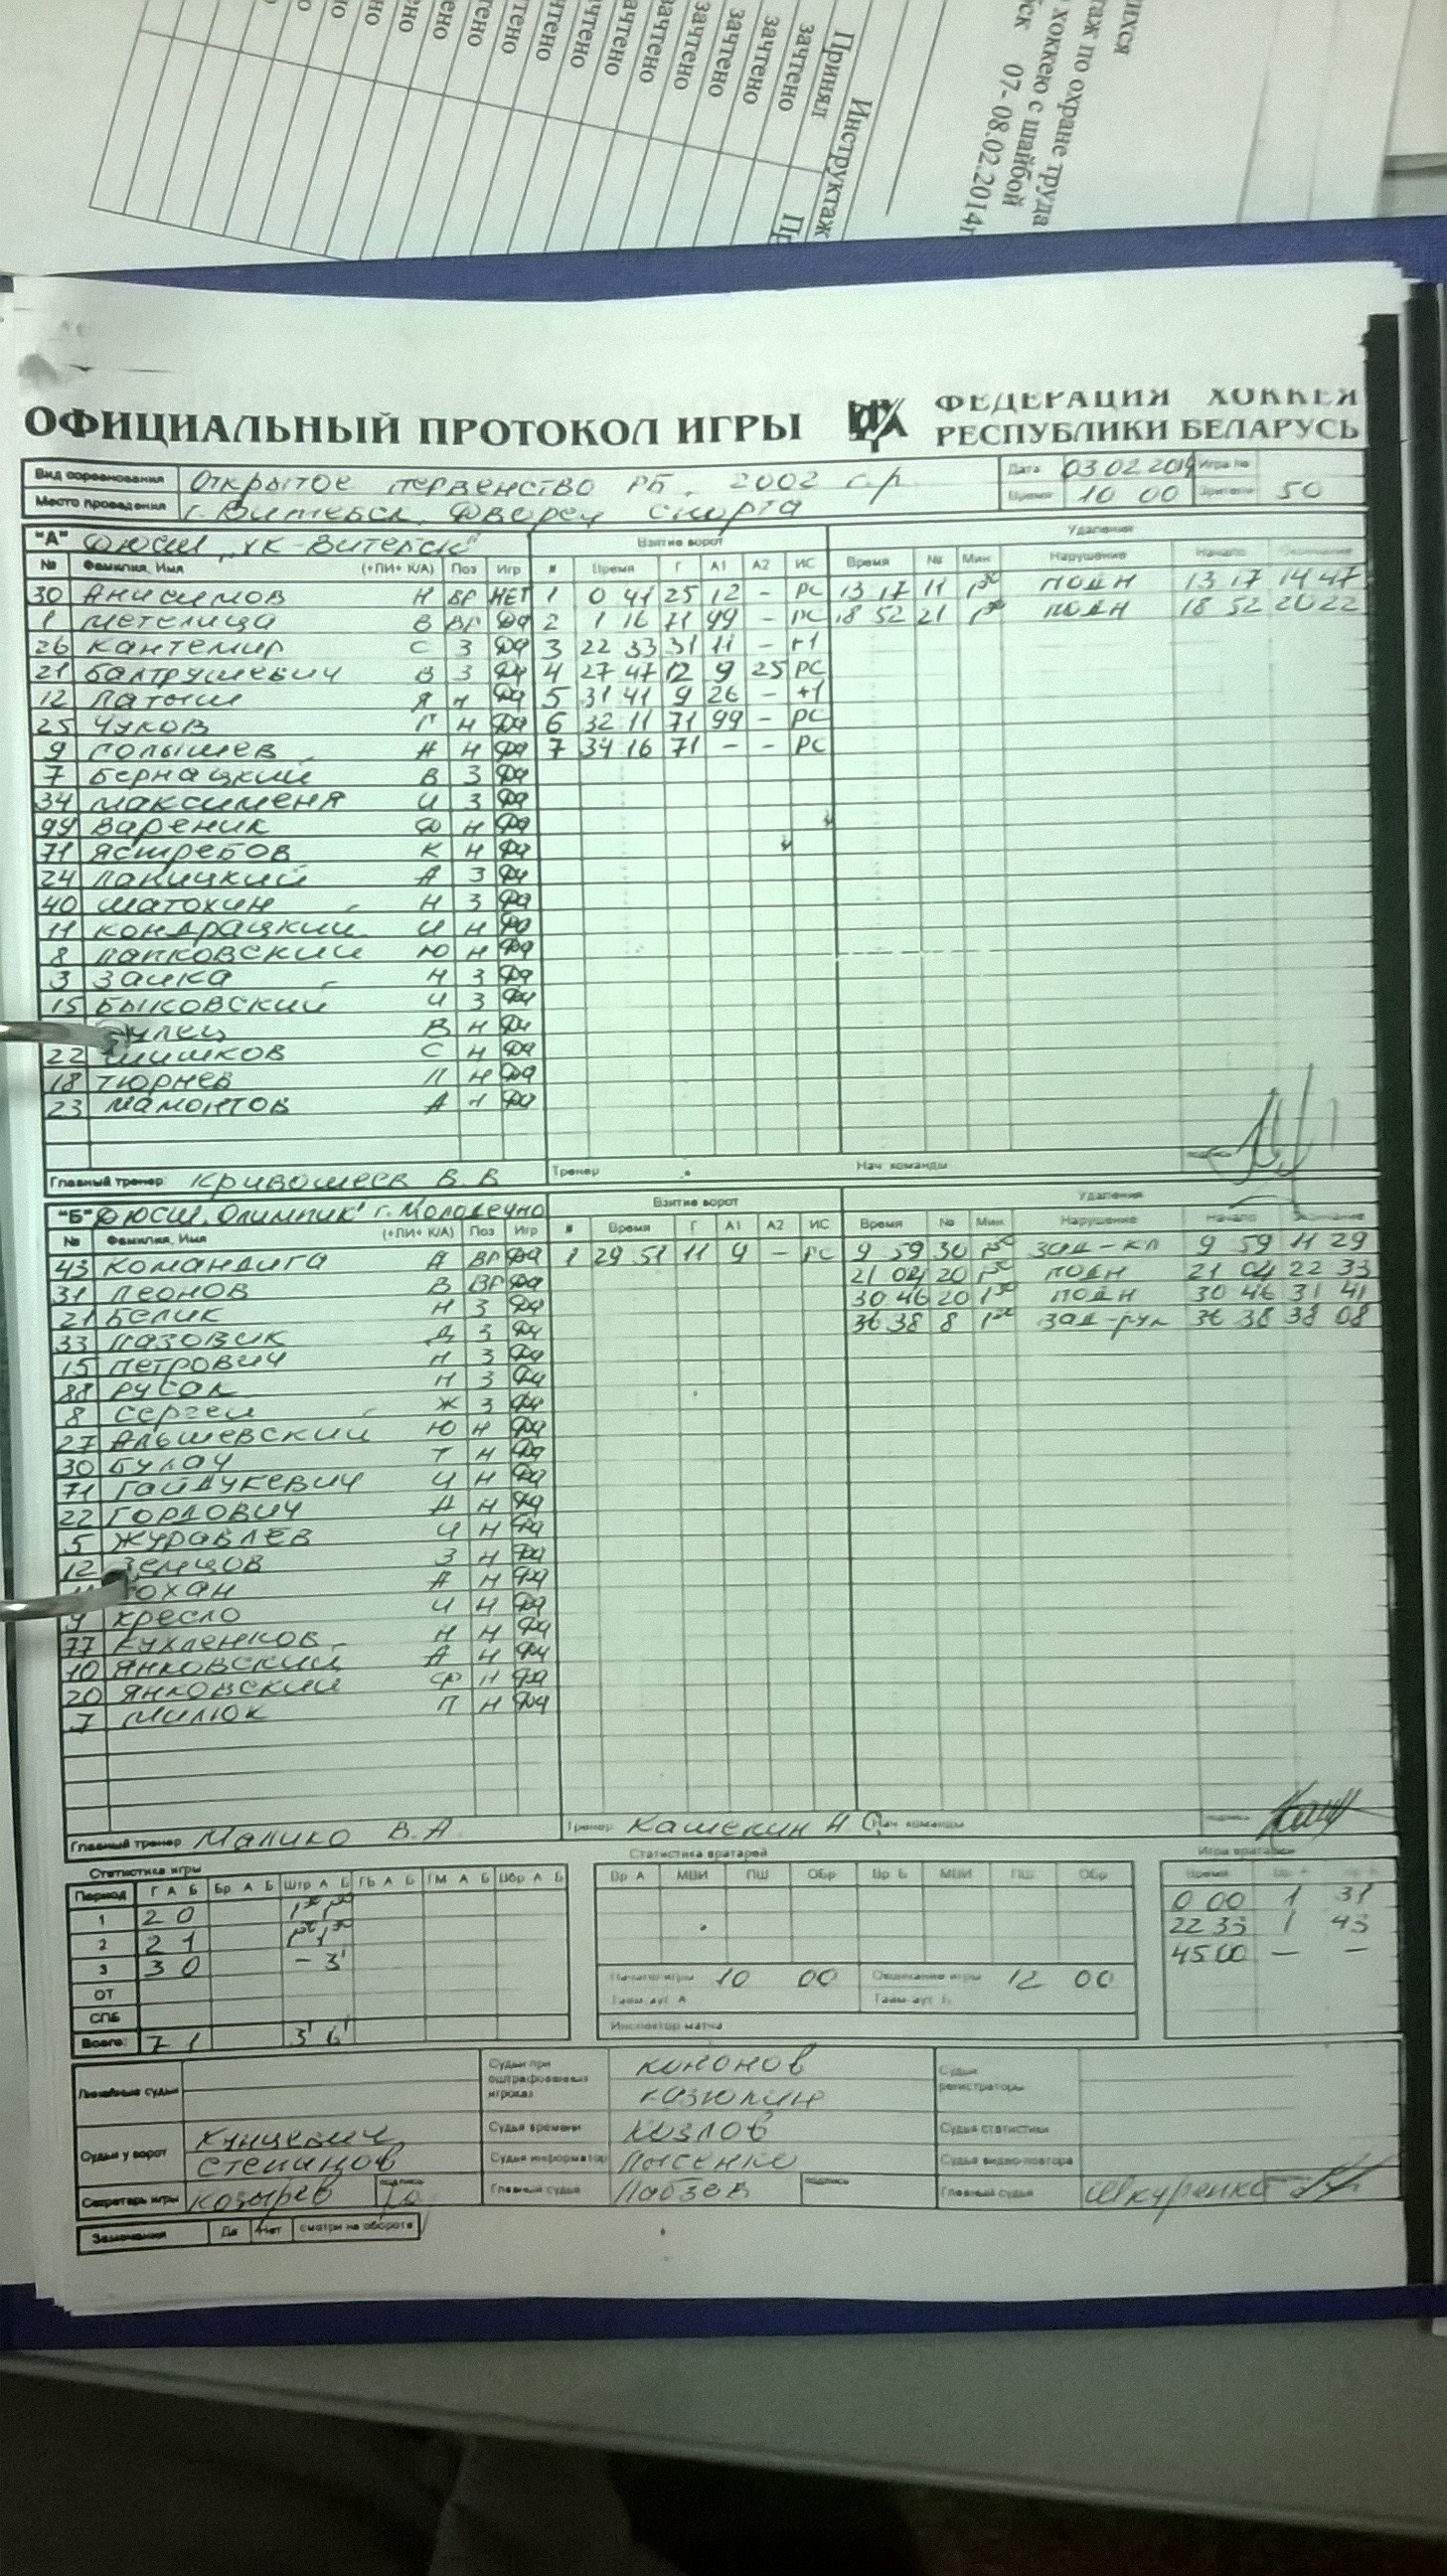 ихся
таж по охране труда
хоккею с шайбой
ск 07-08.02.2014г
Инструктаж
Принял Пр
зачтено
зачтено
зачтено
зачтено
ОФИЦИАЛЬНЫЙ ПРОТОКОЛ ИГРЫ
ФЕДЕРАЦИЯ ХОККЕЯ
РЕСПУБЛИКИ БЕЛАРУСЬ
Вид соревнования Открытое первенство РБ. 2002 г.р Дата 03 02 2014 Игра №
Место проведения г. Витебск. Дворец Спорта Время 10 00 Зрители 50
"А" ДЮСШ „ХК-Витебск" Взятие ворот Удаления
№ Фамилия, Имя (+ПИ+ К/А) Поз Игр # Время Г А1 А2 ИС Время № Мин Нарушение Начало Окончание
30 Анисимов Н ВР НЕТ 1 0 41 25 12 - РС 13 17 11 1³⁰ ПОДН 13 17 14 47
1 Метелица В ВР Да 2 1 16 71 99 - РС 18 52 21 1³⁰ ПОДН 18 52 20 22
26 Кантемир С З Да 3 22 33 31 11 - +1
21 Балтрушевич В З Да 4 27 47 12 9 25 РС
12 Латыш Я Н Да 5 31 41 9 26 - +1
25 Чуков Г Н Да 6 32 11 71 99 - РС
9 Голышев А Н Да 7 34 16 71 - - РС
7 Бернацкий В З Да
34 Максименя И З Да
99 Вареник Ф Н Да
71 Ястребов К Н Да
24 Лакицкий А З Да
40 Шатохин Н З Да
11 Кондрацкий И Н Да
8 Лапковский Ю Н Да
3 Заика Н З Да
15 Быковский И З Да
В Н Да
22 Шишков С Н Да
18 Тюрнев П Н Да
23 Мамонтов А Н Да
Главный тренер Кривошеев В. В Тренер Нач команды
"Б" ДЮСШ „Олимпик" г. Молодечно Взятие ворот Удаления
№ Фамилия, Имя (+ПИ+ К/А) Поз Игр # Время Г А1 А2 ИС Время № Мин Нарушение Начало Окончание
43 Командига А ВР Да 1 29 51 11 9 - РС 9 59 30 1³⁰ ЗАД-КЛ 9 59 11 29
31 Леонов В ВР Да 21 04 20 1³⁰ ПОДН 21 04 22 33
21 Белик Н З Да 30 46 20 1³⁰ ПОДН 30 46 31 41
33 Лазовик Д З Да 36 38 8 1³⁰ ЗАД-РУК 36 38 38 08
15 Петрович Н З Да
88 Русак Н З Да
8 Сергей Ж З Да
27 Альшевский Ю Н Да
30 Булач Т Н Да
71 Гайдукевич И Н Да
22 Гордович А Н Да
5 Журавлев И Н Да
12 Земцов З Н Да
11 охан А Н Да
9 Кресло И Н Да
77 Кухленков Н Н Да
10 Янковский А Н Да
20 Янковский Ф Н Да
7 Милюк П Н Да
Главный тренер Малико В. А Тренер Кашекин Н С Нач команды
Статистика игры Статистика вратарей Игра вратарей
Период Г А Б Бр А Б Штр А Б ГБ А Б ГМ А Б Вбр А Б Вр А МВИ ПШ ОБр Вр Б МВИ ПШ ОБр Время Вр А Вр Б
1 2 0 1³⁰ 1³⁰ 0 00 1 31
2 2 1 1³⁰ 1³⁰ 22 33 1 43
3 3 0 - 3' 45 00 - -
ОТ Начало игры 10 00 Окончание игры 12 00
СПБ Тайм аут А Тайм аут Б
Всего: 7 1 3' 6' Инспектор матча
Линейные судьи Судьи при оштрафованных игроках Кононов Судьи регистраторы
Казюлин
Судьи у ворот Кунцевич Судья времени Козлов Судья статистики
Степанов Судья информатор Лысенко Судья видеоповтора
Секретарь игры Козырев подпись Главный судья Лабзев подпись Главный судья Шкуренко
Замечания Да Нет смотри на обороте